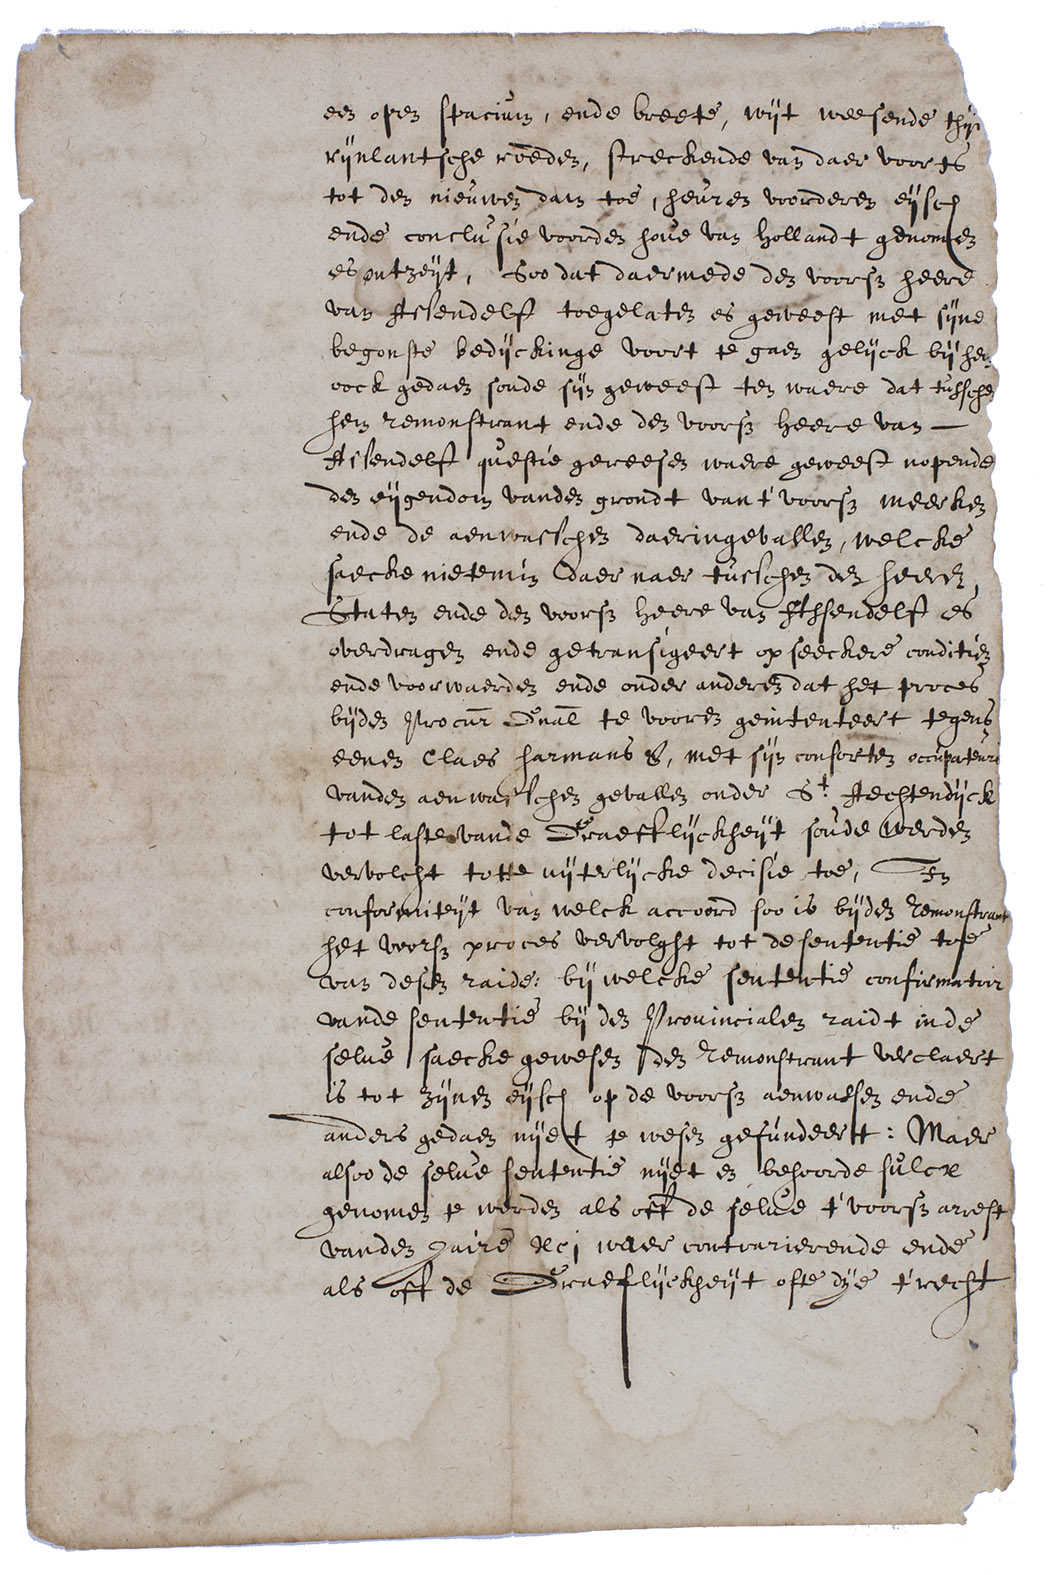 een open spacium, ende breete, wijt weesende thijn
rijnlantsche roeden, streckende van daer voorts
tot den nieuwen dam toe, heuren voorderen eijsch
ende conclusie voorden hove van Hollandt genomen
es ontzeijt, Soo dat daermede den voorsz heere
van Assendelft toegelaten es geweest met sijne
begonste bedijckinge voort te gaen gelijck bij hem
oock gedaen soude sijn geweest ten waere dat tusschen
hem remonstrant ende den voorsz Heere van
Assendelft questie gereesen waere geweest nopende
den eijgendom vanden grondt van t'voorsz meerken
ende de aenwasschen daeringevallen, welcke
saecke nietemin daer naer tusschen den heeren
Staten ende den voorsz Heere van Assendelft es
overdragen ende getransigeert op seeckere conditien
ende voorwaerden ende onder anderen dat het proces
bijden Procur Gnael te vooren geintenteert tegens
eenen Claes Harmans S, met sijn consorten occupateurs
vanden aenwasschen gevallen onder St. Aechtendijck
tot laste vande Graefflijckheijt soude werden
vervolcht totte uijterlijcke decisie toe, In
conformiteijt van welck accoord soo is bijden Remonstrant
het voorsz proces vervolght tot de sententie toe
van desen raide: bij welcke sententie confirmatoir
vande sententie bij den Provincialen raidt in de
selve saecke gewesen den Remonstrant verclaert
is tot zijnen eijsch op de voorsz aenwassen ende
anders gedaen nijet te wesen gefundeert: Maer
alsoo de selve sententie nijet en behoorde sulcx
genomen te werden als off de selve t'voorsz arrest
vanden Jaire Xcj waer contrarierende ende
als off de Graeflijckheijt ofte dije t'recht